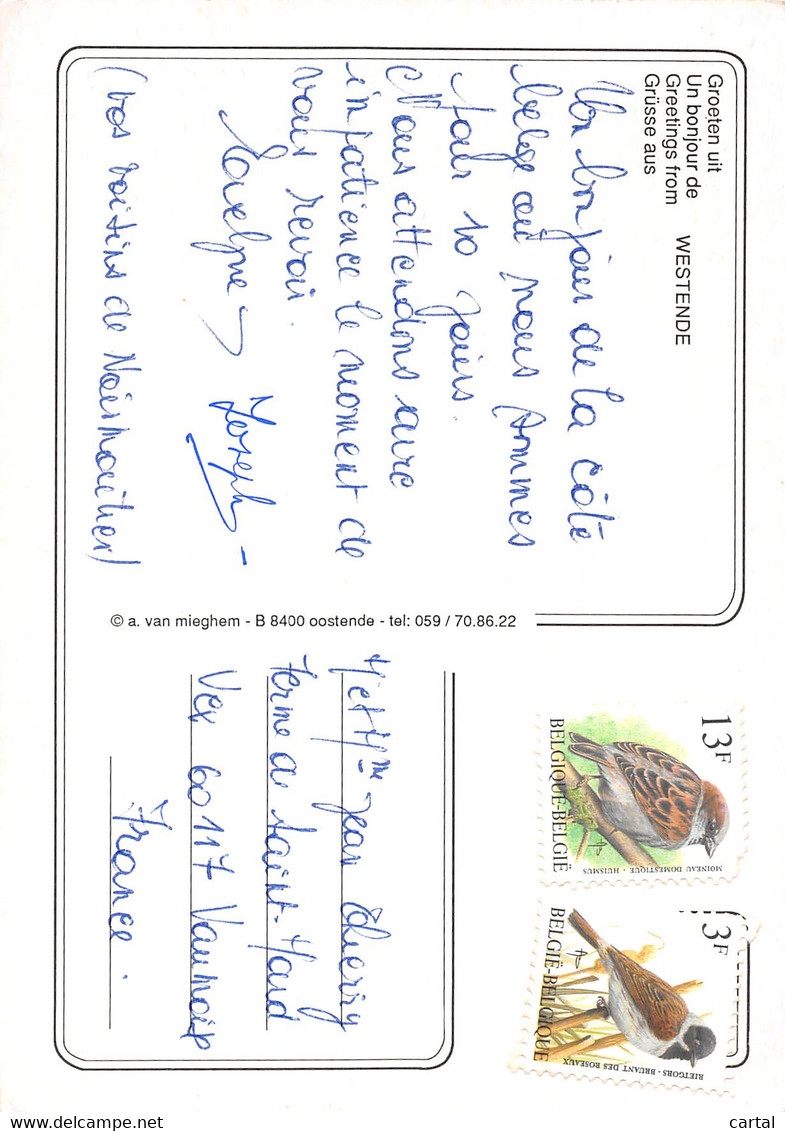 Groeten uit
Un bonjour de
Greetings from
Grüsse aus
WESTENDE
Un bonjour de la côte
belge où nous sommes
pour 10 jours.
Nous attendons avec
impatience le moment de
vous revoir.
Joseph
(vos voisins de Noirmoutier)
© a. van mieghem - B 8400 oostende - tel: 059 / 70.86.22
M et Mme Jean Thierry
Ferme de Saint-Mard
Vez 60117 Vaumoise
France.
13F
BELGIQUE-BELGIË
MOINEAU DOMESTIQUE - HUISMUS
3F
BELGIË-BELGIQUE
RIETGORS - BRUANT DES ROSEAUX
cartal